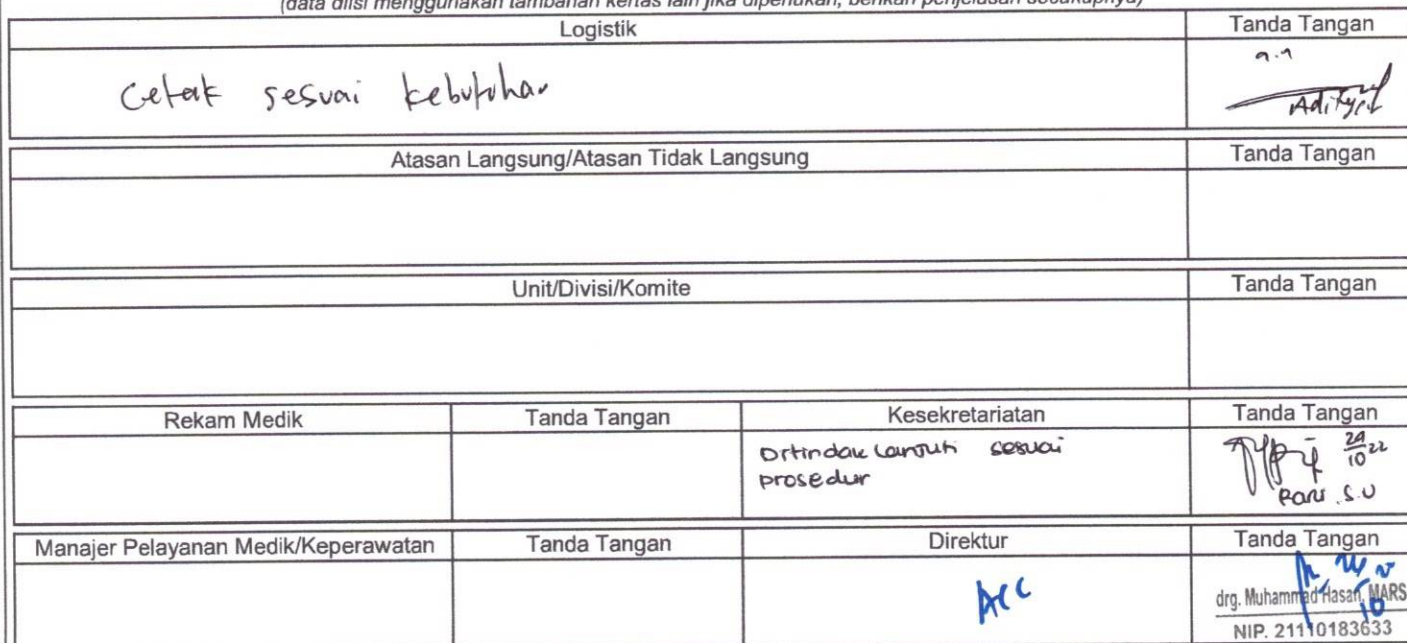 (data diisi menggunakan tambahan kertas lain jika diperlukan, berikan penjelasan secukupnya)
Logistik Tanda Tangan
Cetak sesuai kebutuhan
Aditya
Atasan Langsung/Atasan Tidak Langsung Tanda Tangan
Unit/Divisi/Komite Tanda Tangan
Rekam Medik Tanda Tangan Kesekretariatan Tanda Tangan
Ditindak lanjuti sesuai
prosedur
24/10 22
S.U
Manajer Pelayanan Medik/Keperawatan Tanda Tangan Direktur Tanda Tangan
Acc
drg. Muhammad Hasan, MARS
NIP. 21110183633